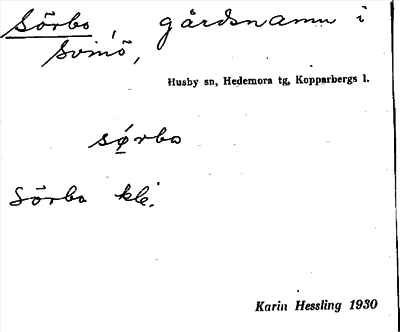 Sörbo, gårdsnamn i
Svinö,
Husby sn, Hedemora tg, Kopparbergs l.
sørbo
Sörbo kle.
Karin Hessling 1930